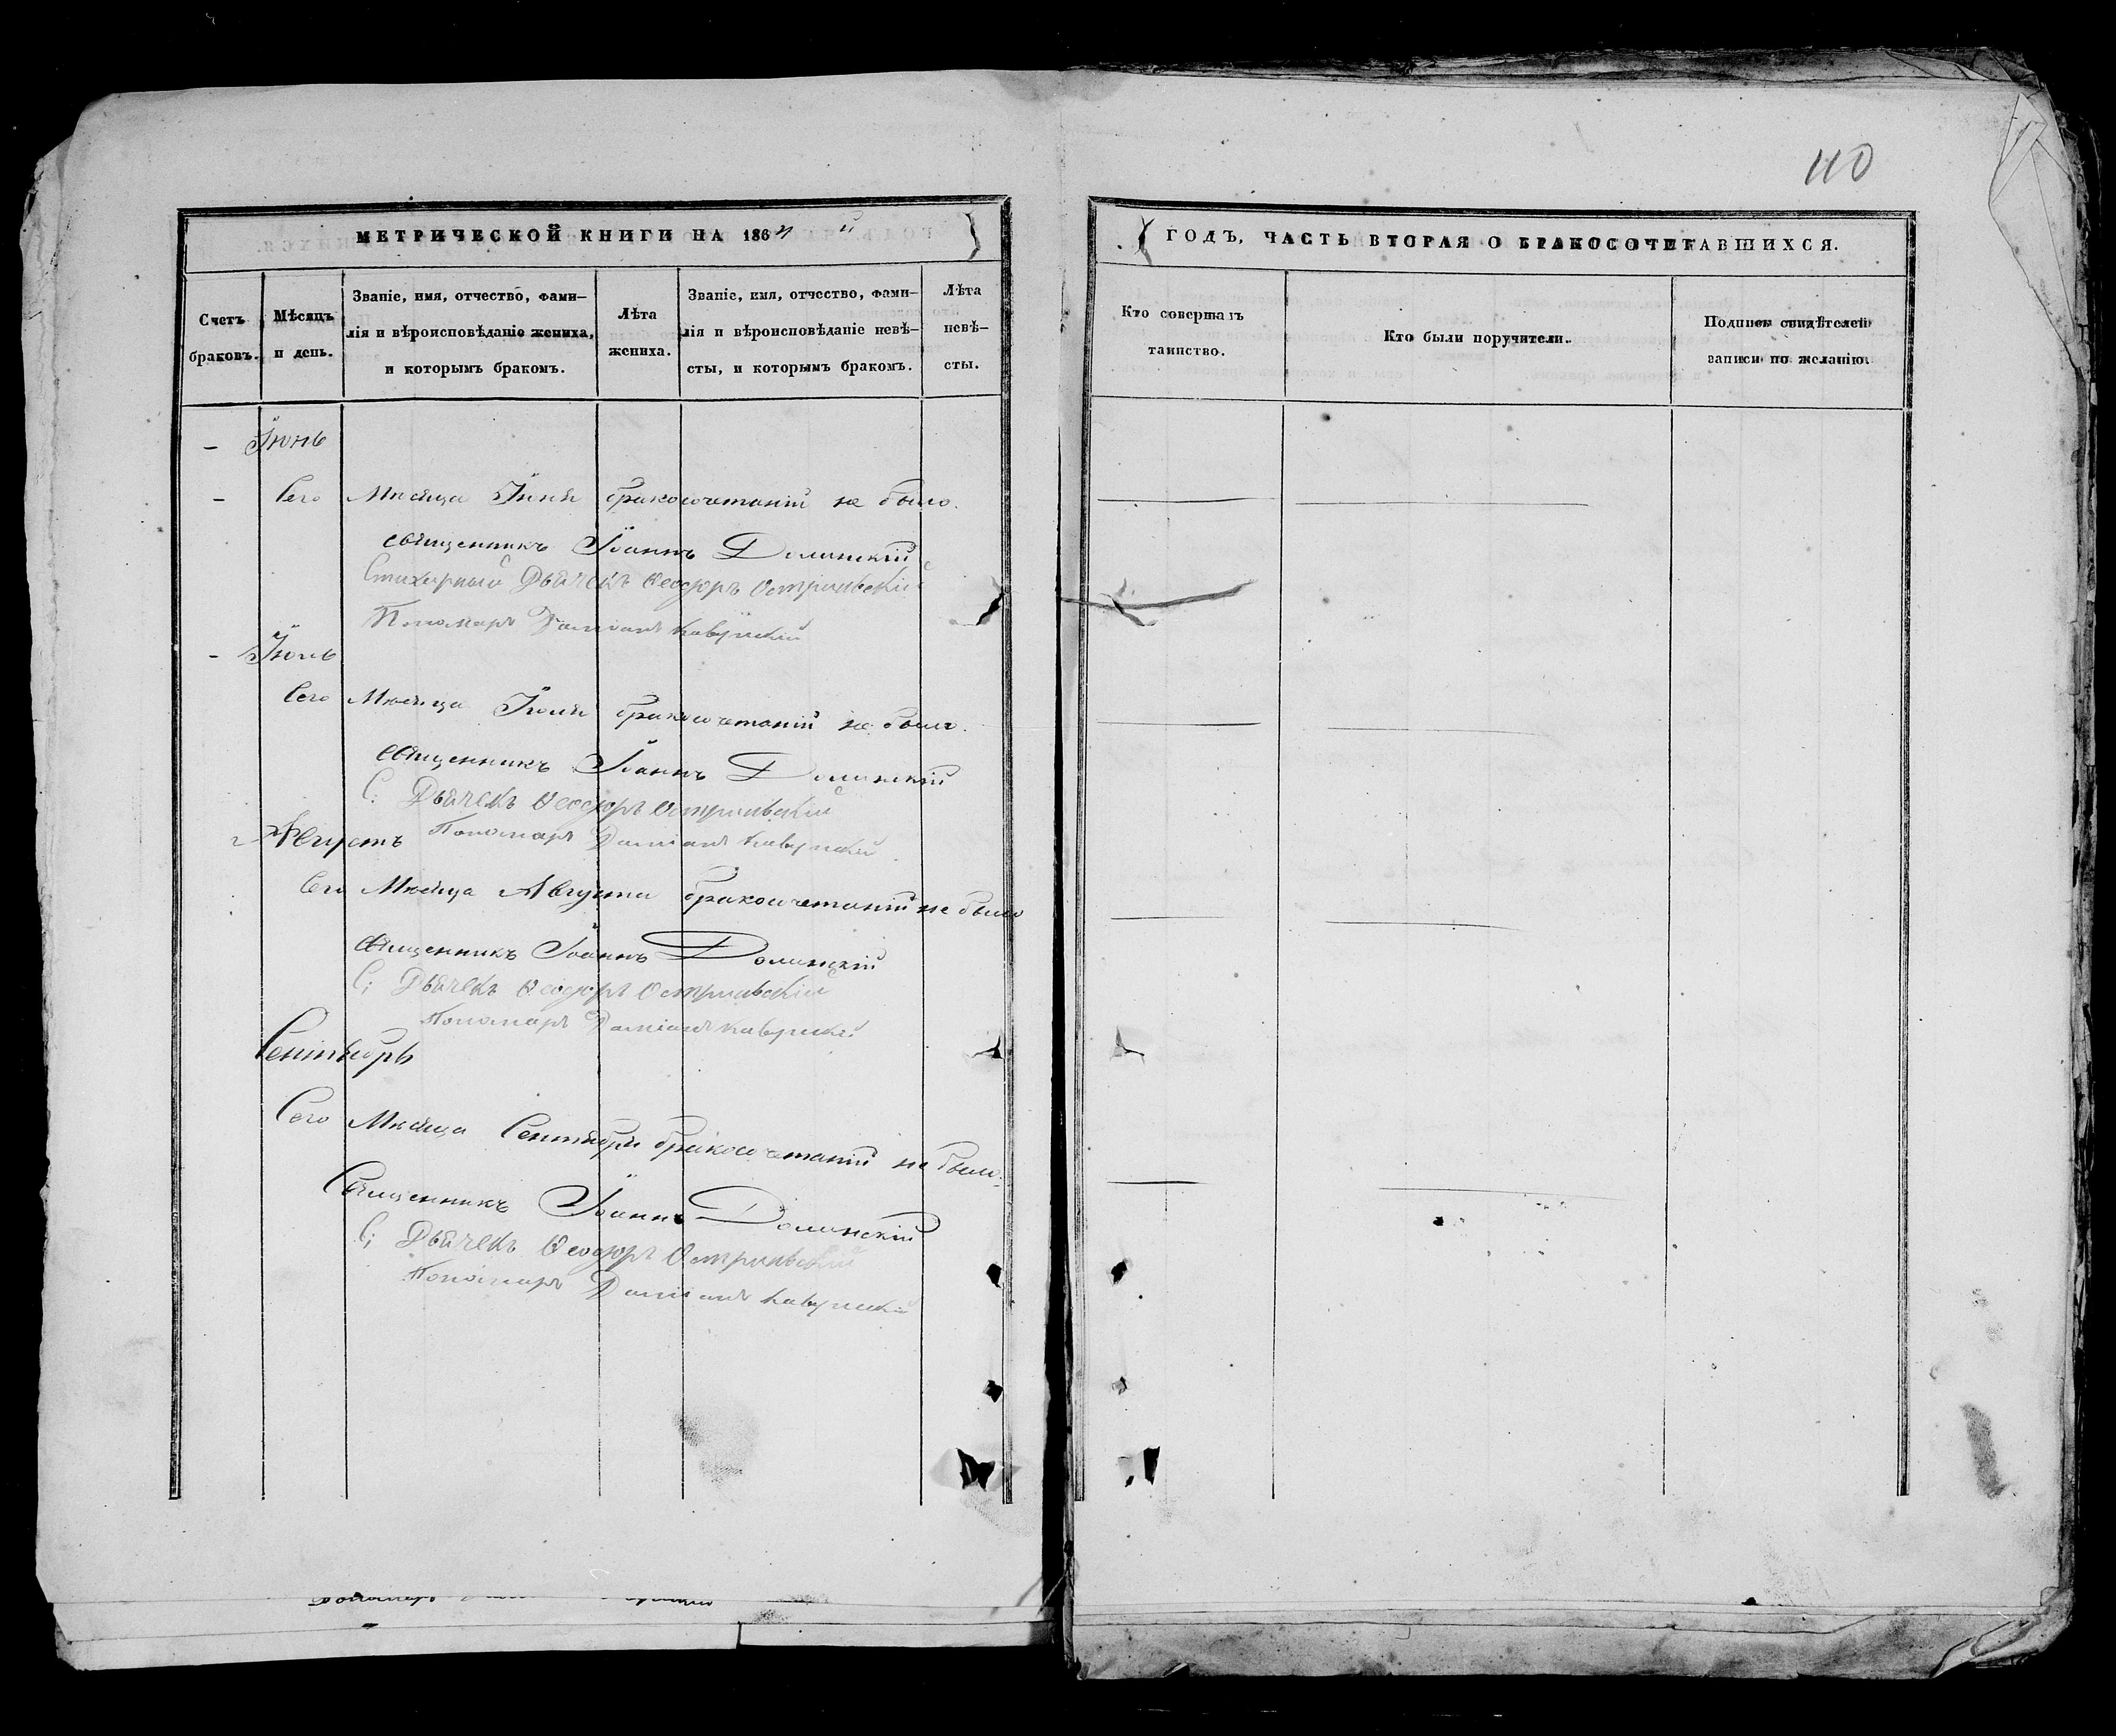 110
МЕТРИЧЕСКОЙ КНИГИ НА 1864 й
ГОДЪ, ЧАСТЬ ВТОРАЯ О БРАКОСОЧЕТАВШИХСЯ.
Счетъ браковъ.
Мѣсяцъ и день.
Званіе, имя, отчество, фами-
лія и вѣроисповѣданіе жениха,
и которымъ бракомъ.
Лѣта жениха.
Званіе, имя, отчество, фами-
лія и вѣроисповѣданіе невѣ-
сты, и которымъ бракомъ.
Лѣта невѣ-
сты.
Кто совершалъ
таинство.
Кто были поручители.
Подписи свидѣтелей
записи по желанію.
– Іюнь
– Сего Мѣсяца Іюня бракосочетаній не было.
Священникъ Іоаннъ Долинскій
Стихарный Дьячекъ Ѳеодоръ
Пономарь Даміанъ
– Іюль
Сего Мѣсяца Іюля бракосочетаній не было.
Священникъ Іоаннъ Долинскій
С: Дьячекъ Ѳеодоръ
Августъ
Пономарь Даміанъ
Сего Мѣсяца Августа бракосочетаній не было
Священникъ Іоаннъ Долинскій
С: Дьячекъ Ѳеодоръ
Пономарь Даміанъ
Сентябрь
Сего Мѣсяца Сентября бракосочетаній не было.
Священникъ Іоаннъ Долинскій
С: Дьячекъ Ѳеодоръ
Пономарь Даміанъ